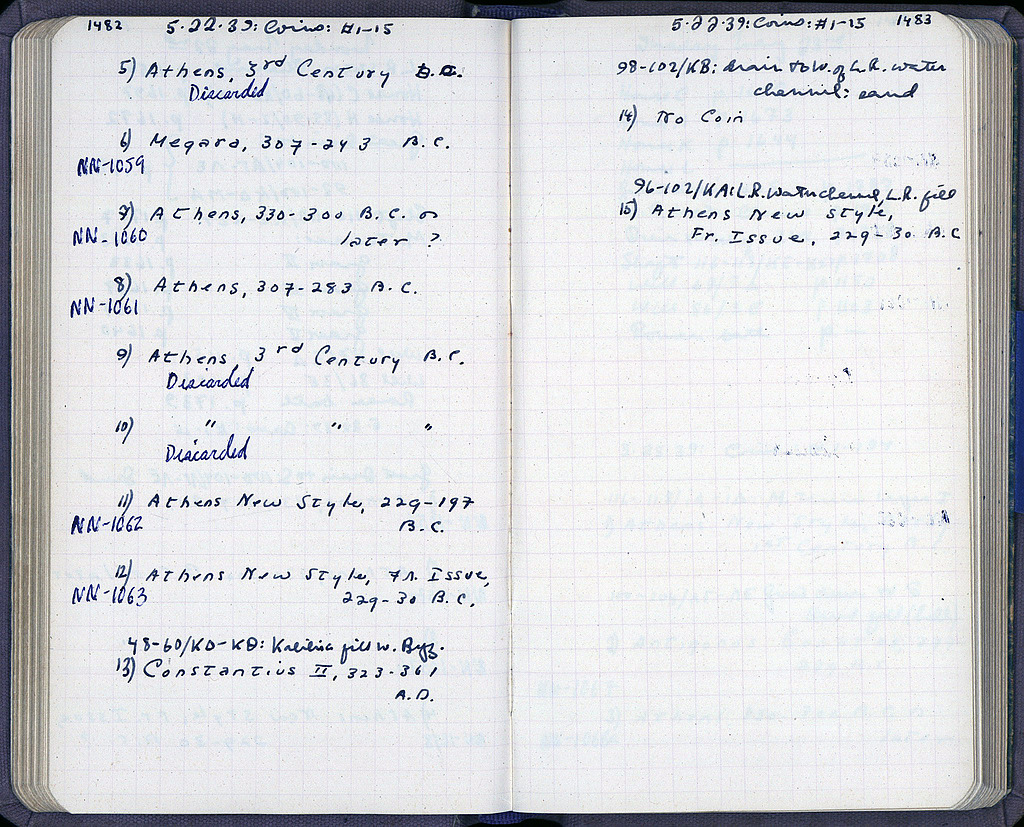 1482 5·22·39: Coins: #1-15
5) Athens, 3rd Century B.C.
Discarded
6) Megara, 307-243 B.C.
NN-1059
7) Athens, 330-300 B.C. or
NN-1060 later ?
8) Athens, 307-283 B.C.
NN-1061
9) Athens, 3rd Century B.C.
Discarded
10) " " "
Discarded
11) Athens New Style, 229-197
NN-1062 B.C.
12) Athens New Style, Fr. Issue,
NN-1063 229-30 B.C.
48-60/KΔ-KΘ: fill w. Byz.
13) Constantius II, 323-361
A.D.
5·22·39: Coins: #1-15 1483
98-102/KB: Drain to W. of L.R. water
channel: sand
14) No Coin
96-102/KA: L.R. water channel, L.R. fill
15) Athens New Style,
Fr. Issue, 229-30 B.C